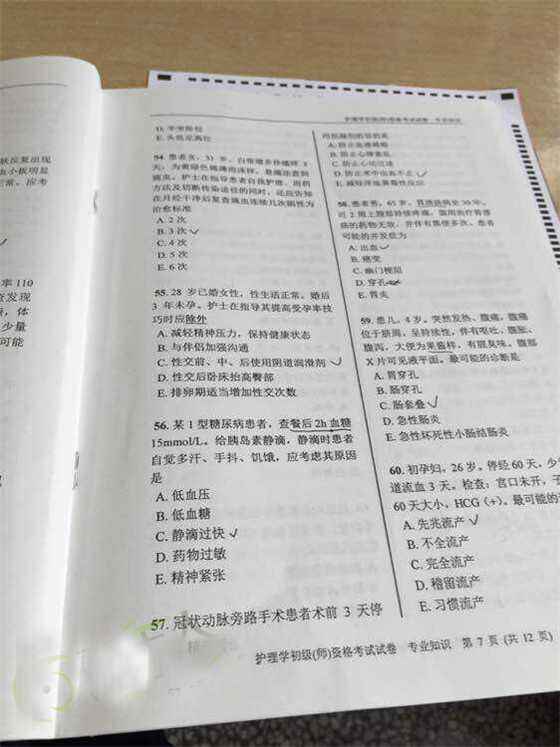 状反复出现
由小板明显
正常。应考
率 110
查发现
，体
少量
可能
护理学初级(师)资格考试试卷 专业知识
D. 半坐卧位
E. 头低足高位
54. 患者女，31 岁。白带增多伴瘙痒 3
天，为黄绿色稀薄泡沫样。悬滴法查到
滴虫。护士在指导患者自我护理、用药
方法及切断传染途径的同时，还应告知
在月经干净后复查滴虫连续几次阴性为
治愈标准
A. 2 次
B. 3 次 ✓
C. 4 次
D. 5 次
E. 6 次
55. 28 岁已婚女性，性生活正常，婚后
3 年未孕。护士在指导其提高受孕率技
巧时应除外
A. 减轻精神压力，保持健康状态
B. 与伴侣加强沟通
C. 性交前、中、后使用阴道润滑剂 ✓
D. 性交后卧床抬高臀部
E. 排卵期适当增加性交次数
56. 某 1 型糖尿病患者，查餐后 2h 血糖
15mmol/L。给胰岛素静滴，静滴时患者
自觉多汗、手抖、饥饿，应考虑其原因
是
A. 低血压
B. 低血糖
C. 静滴过快 ✓
D. 药物过敏
E. 精神紧张
57. 冠状动脉旁路手术患者术前 3 天停
用抗凝剂的目的是
A. 防止血液稀释
B. 防止心律紊乱
C. 防止心动过速
D. 防止术中出血不止 ✓
E. 减轻洋地黄毒性反应
58. 患者男，65 岁。胃溃疡病史 30 年。
近 2 周上腹部持续疼痛，服用治疗胃溃
疡的药物无效，并伴有黑便多次。患者
可能的并发症为
A. 出血 ✓
B. 癌变
C. 幽门梗阻
D. 穿孔
E. 胃炎
59. 患儿，4 岁。突然发热、腹痛，腹痛
位于脐周，呈持续性，伴有呕吐、腹胀、
腹泻，大便为果酱样，有腥臭味。腹部
X 片可见液平面。最可能的诊断是
A. 胃穿孔
B. 肠穿孔
C. 肠套叠 ✓
D. 急性肠炎
E. 急性坏死性小肠结肠炎
60. 初孕妇，26 岁。停经 60 天，少
道流血 3 天。检查：宫口未开，子
60 天大小，HCG（+）。最可能的
A. 先兆流产 ✓
B. 不全流产
C. 完全流产
D. 稽留流产
E. 习惯流产
护理学初级(师)资格考试试卷 专业知识 第 7 页 (共 12 页)